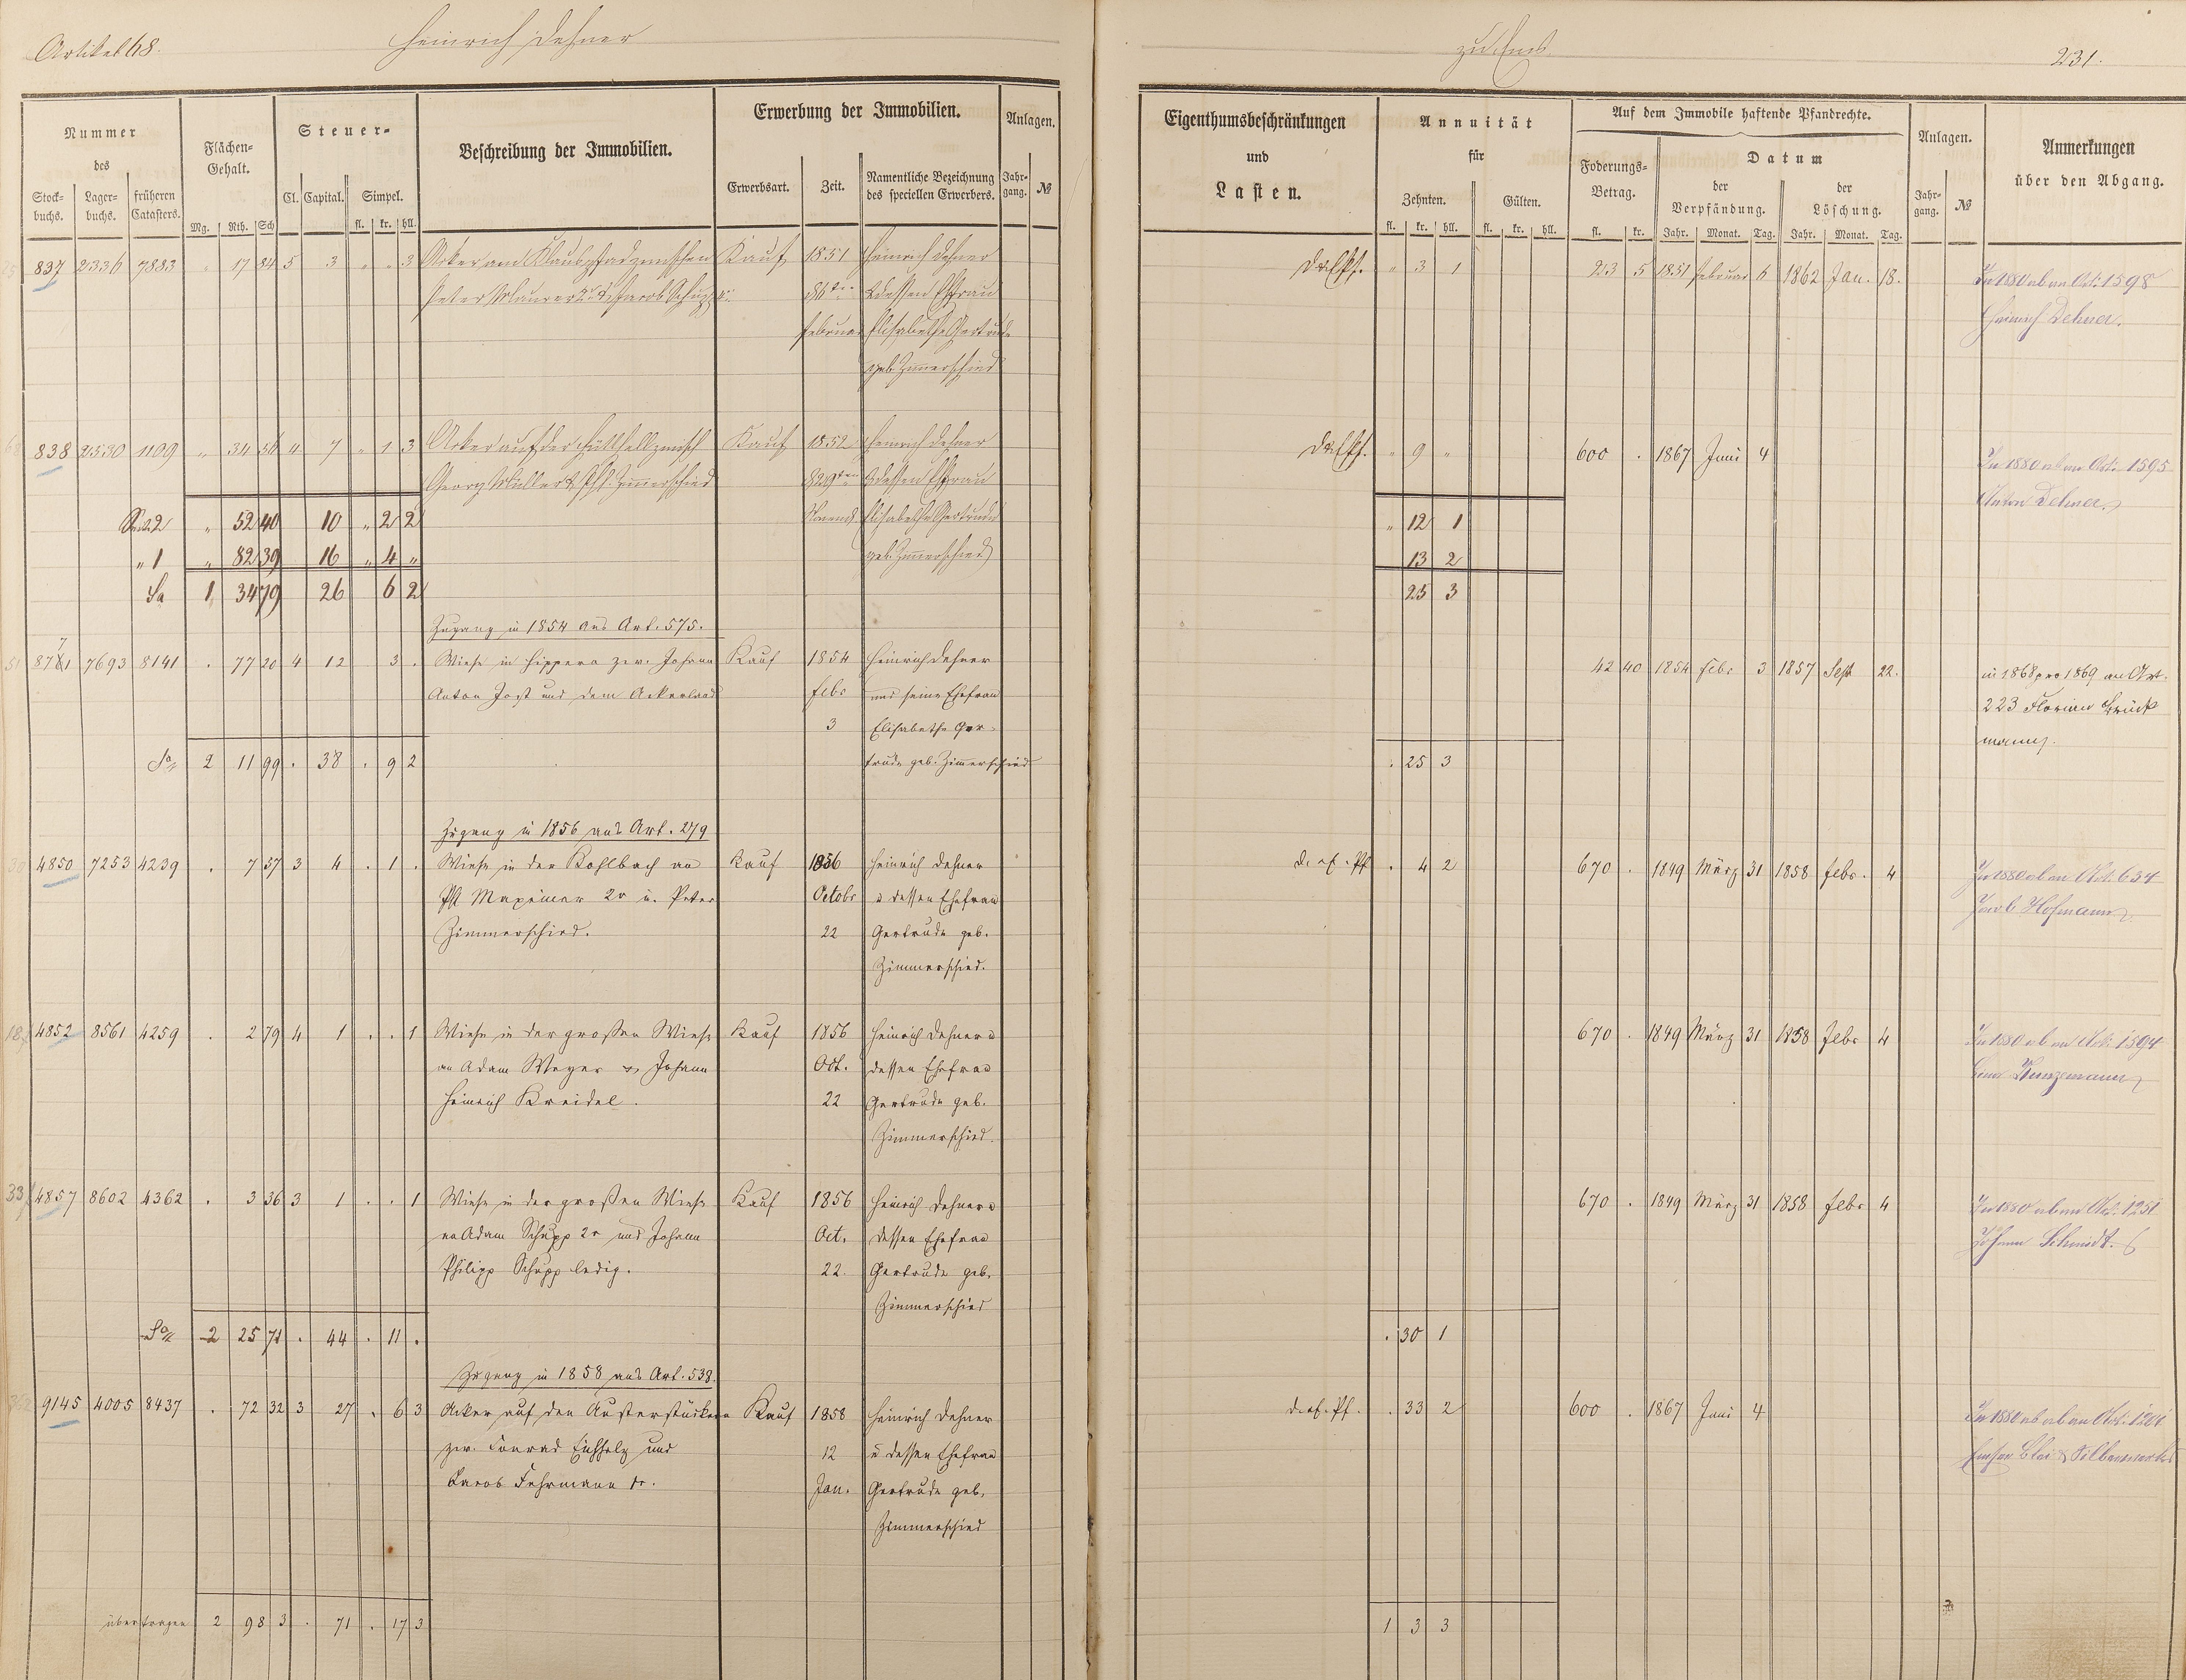 Artikel 68.
Heinrich Dehner
zu Ems
231.
Nummer
des
Stock-
buchs.
Lager-
buchs.
früheren
Catasters.
Flächen-
Gehalt.
Mg. Rth. Sch
Steuer-
Cl. Capital. Simpel.
fl. kr. hll.
Beschreibung der Immobilien.
Erwerbung der Immobilien.
Erwerbsart.
Zeit.
Namentliche Bezeichnung
des speciellen Erwerbers.
Anlagen.
Jahr-
gang.
№
Eigenthumsbeschränkungen
und
Lasten.
Annuität
für
Zehnten.
Gülten.
fl. kr. hll. fl. kr. hll.
Auf dem Immobile haftende Pfandrechte.
Foderungs-
Betrag.
fl. kr.
Datum
der
Verpfändung.
der
Löschung.
Jahr. Monat. Tag. Jahr. Monat. Tag.
Anlagen.
Jahr-
gang.
№
Anmerkungen
über den Abgang.
837 2336 7883 " 17 84 5 3 " " 3 Acker am Klauspfad zwischen Kauf 1851 Heinrich Dehner " 3 1 223 5 1851 Februar 6 1862 Jan. 18. In 1880 ab an Art. 1598
Peter Maurer & Jacob Schupp Februar & dessen Ehfrau Heinrich Dehner.
Elisabethe Gertrude
geb. Zimmerschied
838 2530 1109 " 34 56 4 7 " 1 3 Acker auf der zwisch Kauf 1852 Heinrich Dehner " 9 " 600 . 1867 Juni 4 In 1880 ab an Art. 1595
Georg Müller & Phl. Zimmerschied & dessen Ehfrau Anton Dehner.
Sa. 2 " 52 40 10 " 2 2 Elisabethe Gertrude " 12 1
" 1 " 82 39 16 " 4 " geb. Zimmerschied 13 2
Sa 1 34 79 26 6 2 25 3
Zugang in 1854 aus Art. 575.
8771 7693 8141 . 77 20 4 12 3 . Wiese in Hippera zw. Johann Kauf 1854 Heinrich Dehner 42 40 1854 Febr 3 1857 Sept 22. in 1868 pro 1869 an Art.
Anton Jost und dem Ackerland Febr und seine Ehefrau 223 Florian Brück
3 Elisabethe Ger- mann.
Sa 2 11 99 . 38 . 9 2 trude geb. Zimerschied . 25 3
Zugang in 1856 aus Art. 279
4850 7253 4239 . 7 57 3 4 . 1 . Wiese in der Kohlbach an Kauf 1856 Heinrich Dehner d. ef. Pf . 4 2 670 . 1849 März 31 1858 Febr. 4 In 1880 ab an Art. 634
Phl Maxeiner 2r u. Peter Octobr u dessen Ehefrau Jacob Hofmann
Zimmerschied. 22 Gertrude geb.
Zimmerschied.
4852 8561 4259 . 2 79 4 1 . . 1 Wiese in der großen Wiese Kauf 1856 Heinrich Dehner u 670 . 1849 März 31 1858 Febr 4 In 1880 ab an Art. 1594
an Adam Weyer & Johann Oct. dessen Ehefrau Kunzemann
Heinrich Kreidel. 22 Gertrude geb.
Zimmerschied.
4857 8602 4362 . 3 36 3 1 . . 1 Wiese in der großen Wiese Kauf 1856 Heinrich Dehner u 670 . 1849 März 31 1858 Febr 4 In 1880 ab an Art. 1251
an Adam Schupp 2r und Johann Oct. dessen Ehefrau Johann Schmidt.
Philipp Schupp ledig. 22. Gertrude geb.
Zimmerschied
Sa 2 25 71 . 44 . 11 . . 30 1
Zugang in 1858 aus Art. 538.
9145 4005 8437 . 72 32 3 27 . 6 3 Acker auf den Austerstücken Kauf 1858 Heinrich Dehner d. ef. Pf. . 33 2 600 . 1867 Juni 4
zw. Conrad Eichholz und 12 u dessen Ehefrau Emser Blei & Silberwerk
Jacob Fuhrmann Jan. Gertrude geb.
Zimmerschied
übertragen 2 98 3 . 71 . 17 3 1 3 3